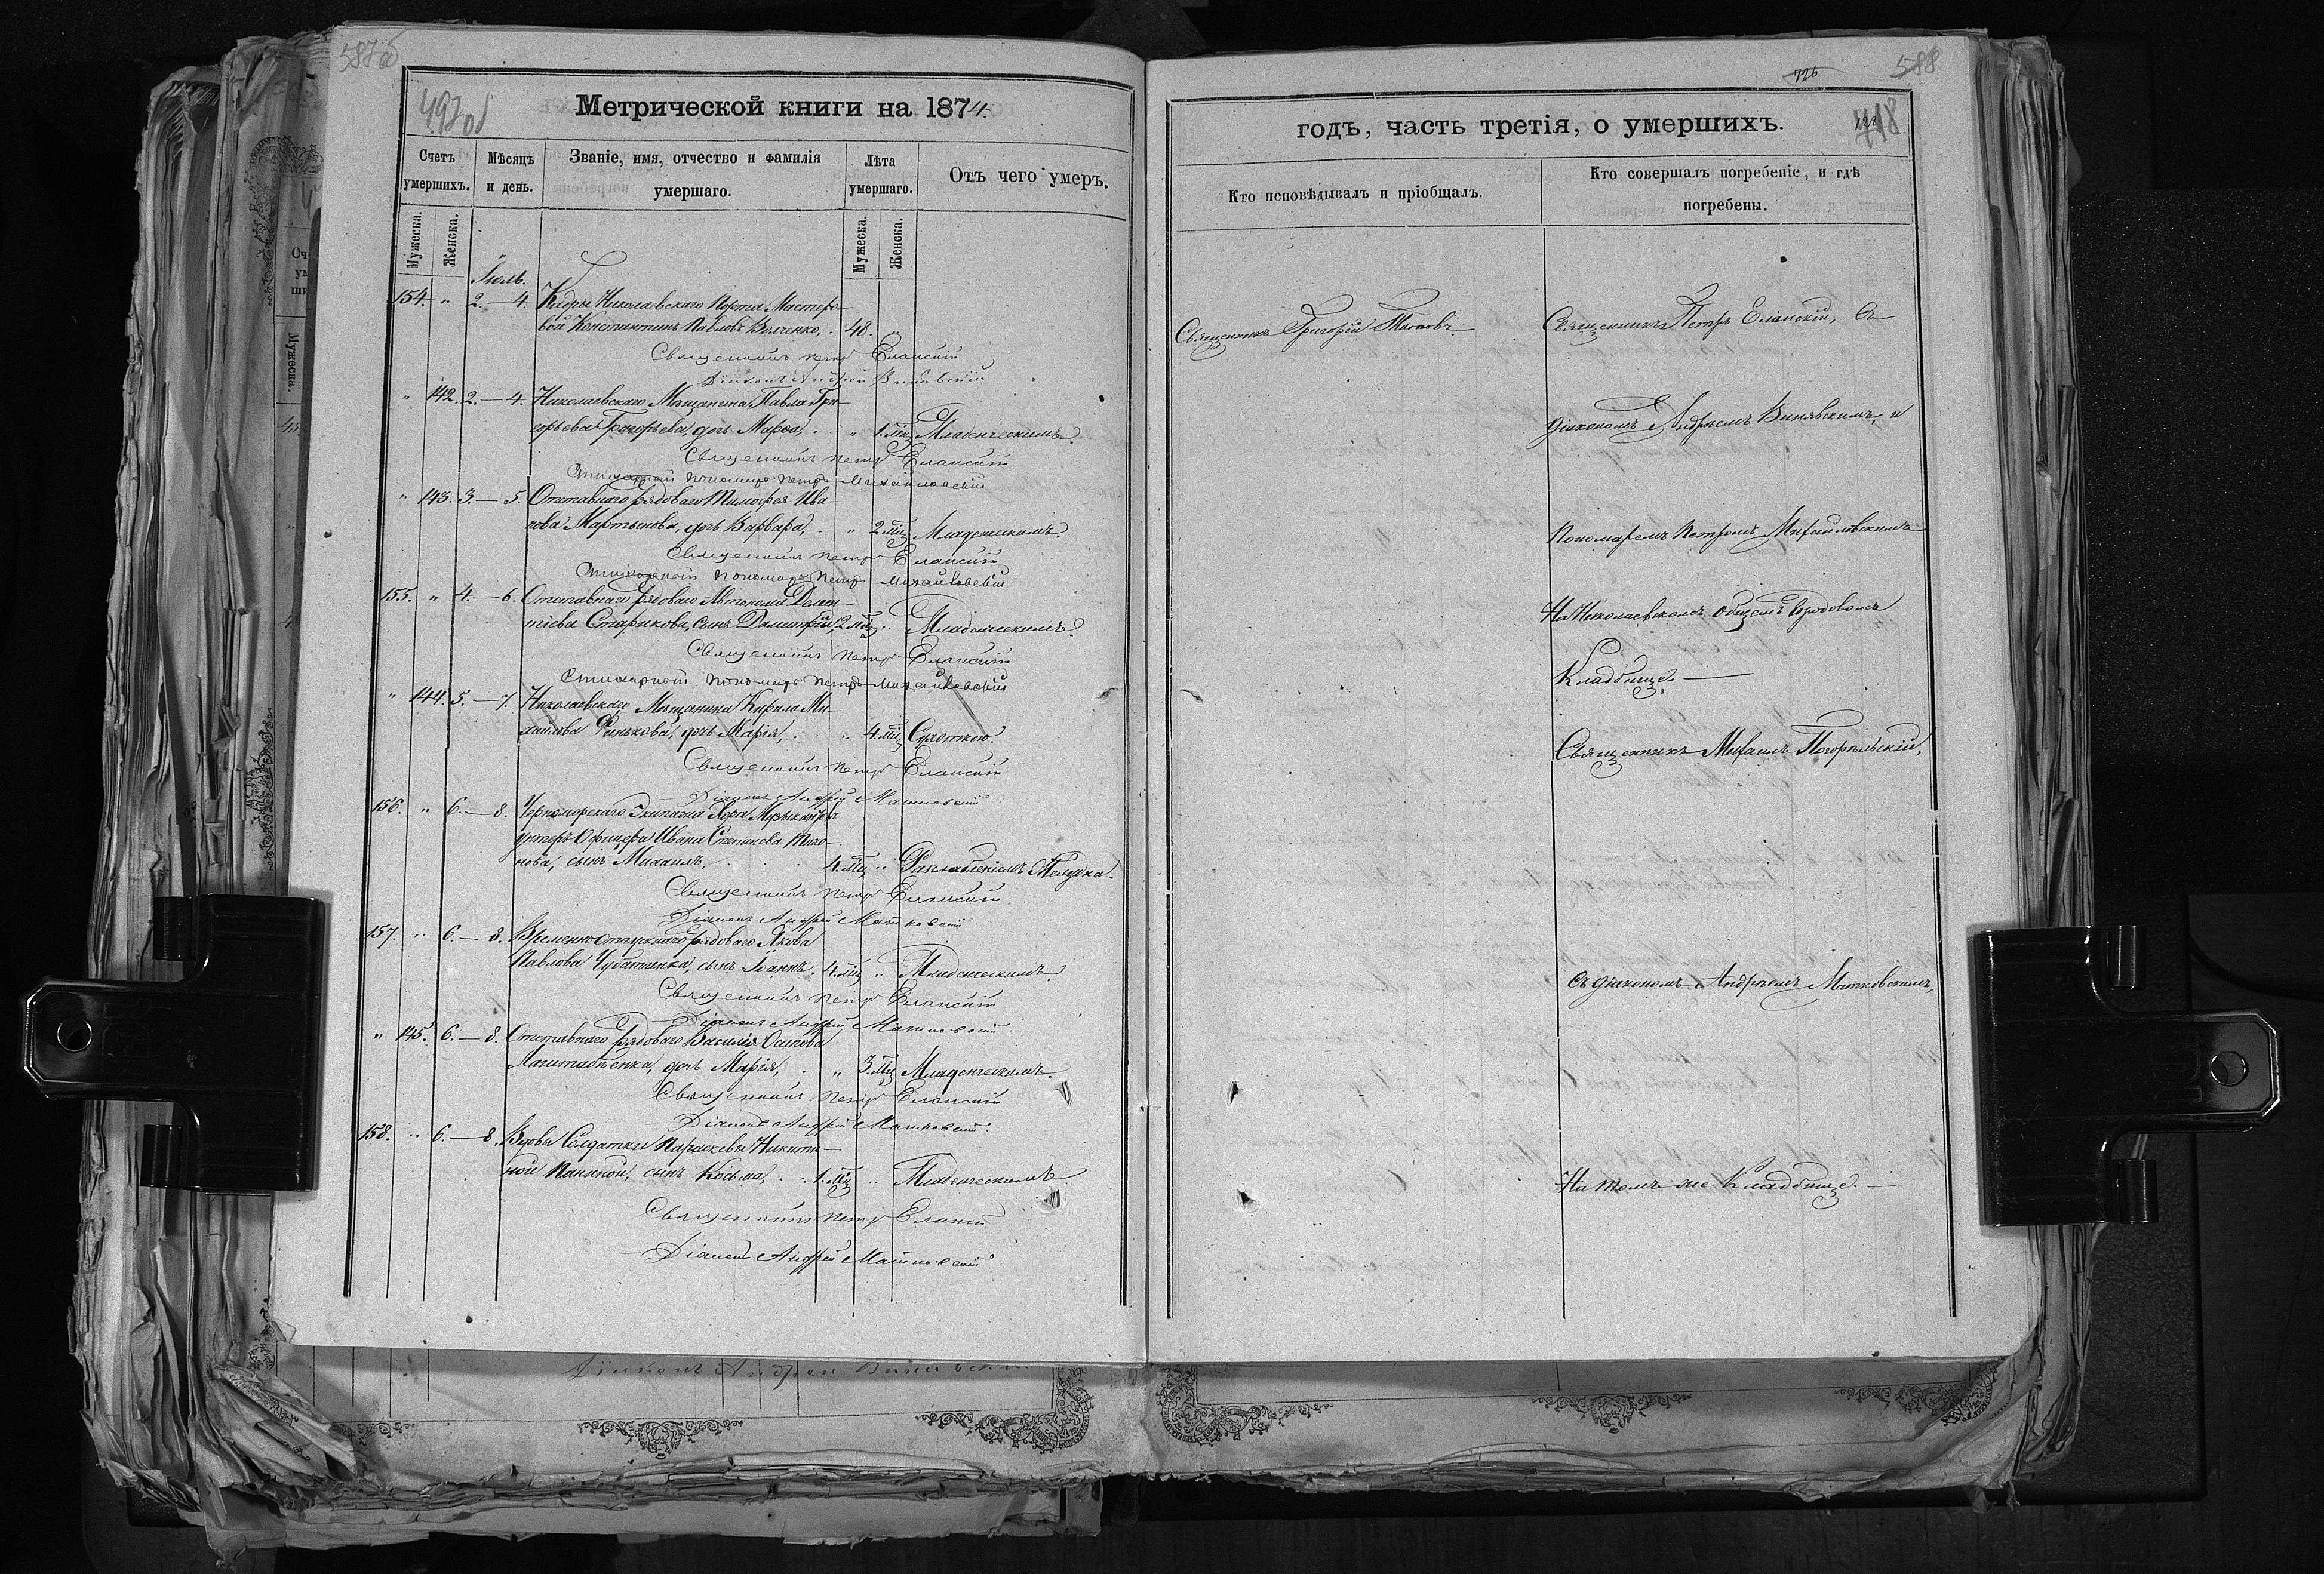 587об
493об
Метрической книги на 1874.
Счетъ умершихъ.
Мѣсяцъ и день.
Званіе, имя, отчество и фамилія умершаго.
Лѣта умершаго.
Отъ чего умеръ.
Мужеска.
Женска.
Мужеска.
Женска.
Іюль.
154. " 2.—4. Кадры Николаевскаго Порта Мастеро-
вой Константинъ Павловъ 48. "
Священникъ Петръ Еланскій
Діаконъ Андрей
" 142. 2.—4. Николаевскаго Мѣщанина Павла Гри-
горьева Григорьева, дочь Марѳа, " 1. мц. Младенческимъ.
Священникъ Петръ Еланскій
Стихарный пономарь Петръ Михайловскій
" 143. 3.—5. Отставнаго рядоваго Тимофея Ива-
нова Мартынова, дочь Варвара, " 2 мц. Младенческимъ.
Священникъ Петръ Еланскій
Стихарный пономарь Петръ Михайловскій
155. " 4.—6. Отставнаго рядоваго Автонома Демен-
тіева Старикова, сынъ Димитрій, 2 мц. " Младенческимъ.
Священникъ Петръ Еланскій
Стихарный пономарь Петръ Михайловскій
" 144. 5.—7. Николаевскаго Мѣщанина Кирила Ми-
хайлова Финькова, дочь Марія, " 4. мц. Сухоткою.
Священникъ Петръ Еланскій
Діаконъ Андрей Матковскій
156. " 6.—8. Черноморскаго Экипажа Хора Музыкантовъ
унтеръ Офицера Ивана Степанова
нова, сынъ Михаилъ, 4. мц. " Разслабленіемъ Желудка.
Священникъ Петръ Еланскій
Діаконъ Андрей Матковскій
157. " 6.—8. Временно отпускнаго рядоваго Якова
Павлова сынъ Іоаннъ, 4. мц. " Младенческимъ
Священникъ Петръ Еланскій
Діаконъ Андрей Матковскій
" 145. 6.—8. Отставнаго рядоваго Василія Осипова
дочь Марія, " 3. мц. Младенческимъ.
Священникъ Петръ Еланскій
Діаконъ Андрей Матковскій
158. " 6.—8. Вдовы Солдатки Параскевы Никити-
ной сынъ Косьма, 1. мц. " Младенческимъ.
Священникъ Петръ Еланскій
Діаконъ Андрей Матковскій
726
588
718
годъ, часть третія, о умершихъ.
Кто исповѣдывалъ и пріобщалъ.
Кто совершалъ погребеніе, и гдѣ погребены.
Священникъ Григорій
Священникъ Петръ Еланскій, съ
діакономъ Андреемъ и
Пономаремъ Петромъ Михайловскимъ
На Николаевскомъ общемъ городовомъ
Кладбищѣ.
Священникъ Михаилъ Погорѣльскій,
съ діакономъ Андреемъ Матковскимъ,
На томъ же Кладбищѣ.